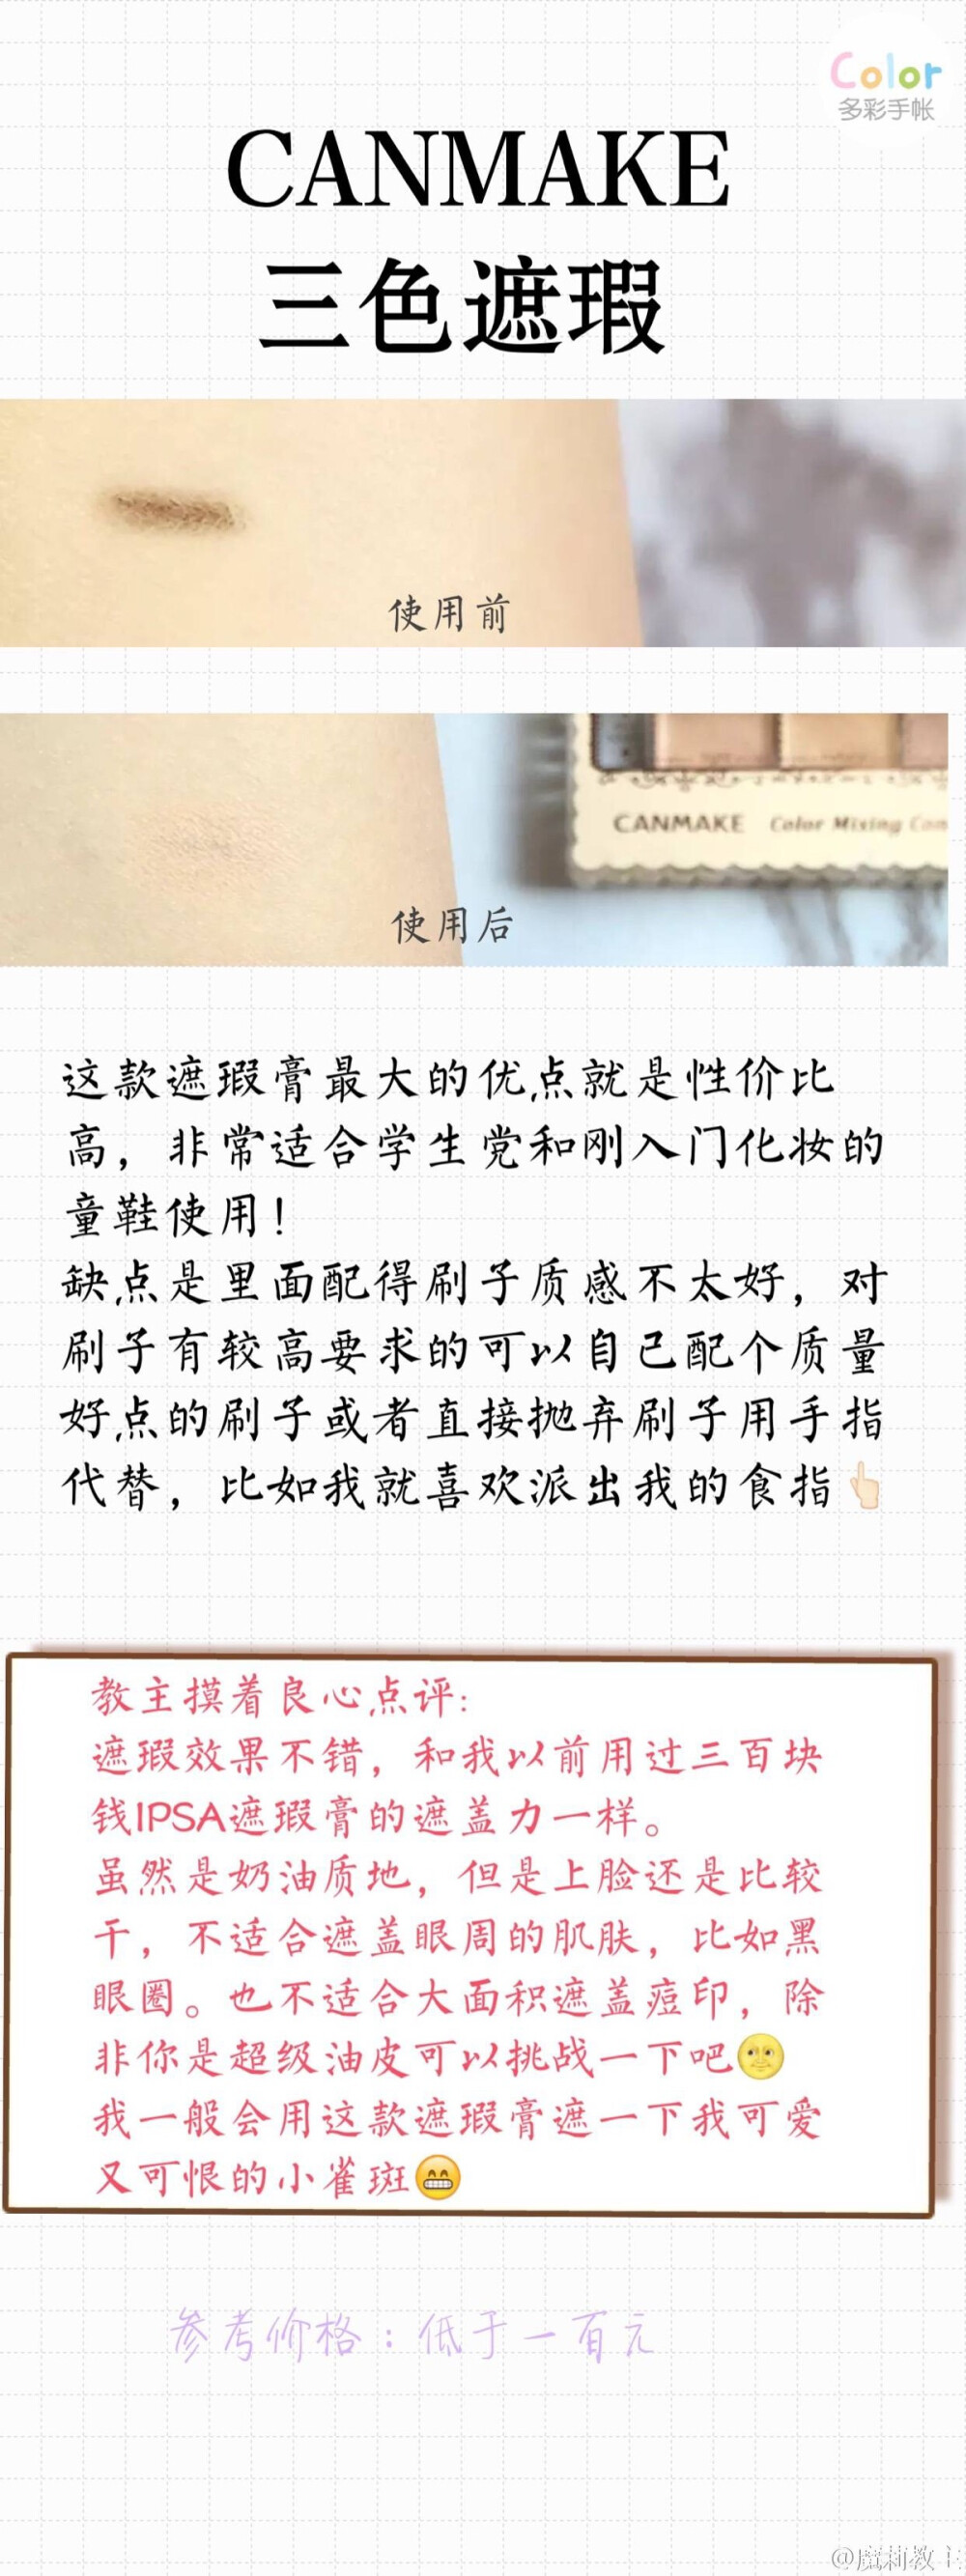 Color
多彩手帐
CANMAKE
三色遮瑕
使用前
CANMAKE Color Mixing Con
使用后
这款遮瑕膏最大的优点就是性价比
高，非常适合学生党和刚入门化妆的
童鞋使用！
缺点是里面配得刷子质感不太好，对
刷子有较高要求的可以自己配个质量
好点的刷子或者直接抛弃刷子用手指
代替，比如我就喜欢派出我的食指👆🏻
教主摸着良心点评:
遮瑕效果不错，和我以前用过三百块
钱IPSA遮瑕膏的遮盖力一样。
虽然是奶油质地，但是上脸还是比较
干，不适合遮盖眼周的肌肤，比如黑
眼圈。也不适合大面积遮盖痘印，除
非你是超级油皮可以挑战一下吧🌝
我一般会用这款遮瑕膏遮一下我可爱
又可恨的小雀斑😁
参考价格：低于一百元
@魔莉教主